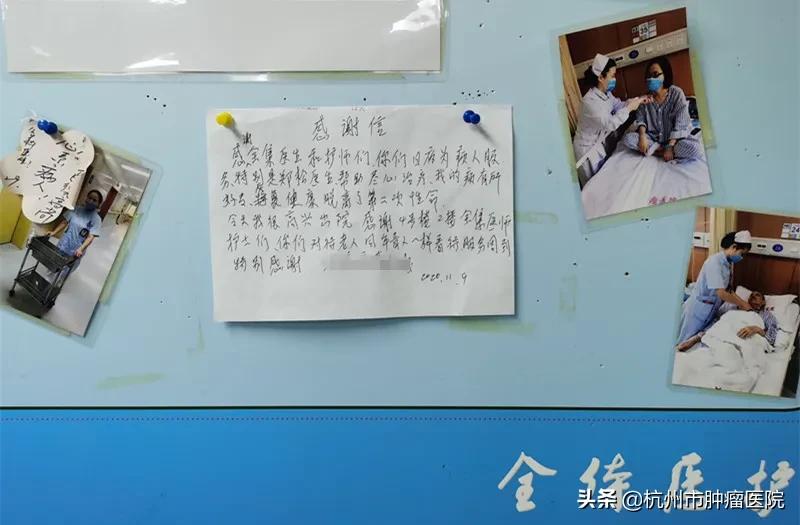 感谢信
感全集医生和护师们,你们日夜为病人服
务,特别是郑松医生帮助尽心治疗,我的病有所
好友 健康 脱离了第二次性命
今天我很高兴出院 感谢4号楼2楼全集医师
护士们,你们对待老人同年青人一样看待服务周到
特别感谢
2020.11.9
全体医护
头条@杭州市肿瘤医院